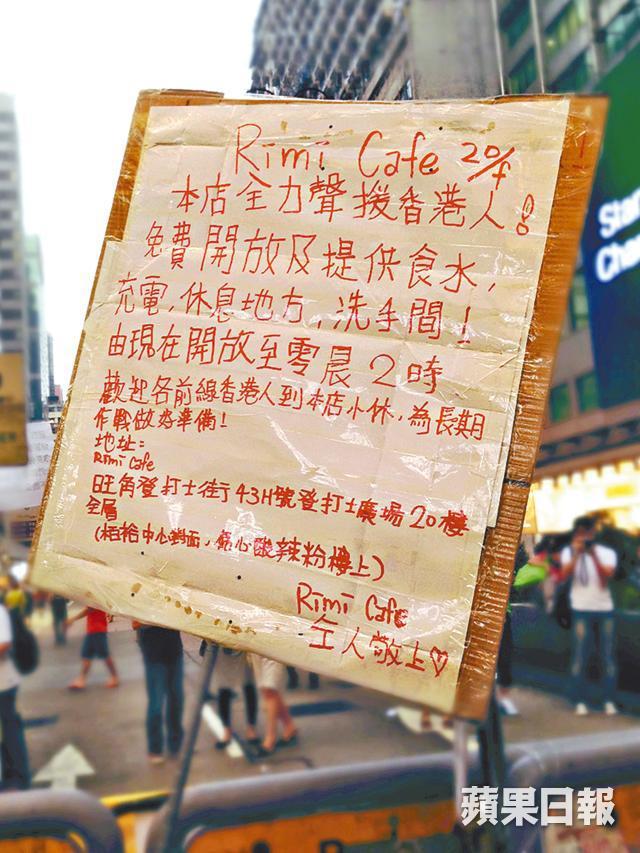 Rimi Cafe 20/f
本店全力聲援香港人！
免費開放及提供食水，
充電，休息地方，洗手間！
由現在開放至零晨2時
歡迎各前線香港人到本店小休，為長期
作戰做好準備！
地址：
Rimi Cafe
旺角登打士街43H號登打士廣場20樓
全層
(栢裕中心對面，傷心酸辣粉樓上)
Rimi Cafe
仝人敬上♡
Sta
Cha
蘋果日報